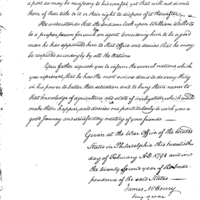 a port as may be necessary to his comfort, yet that will not divest
them of their title to it or their right to dispose of it thereafter.
He understands that the Indians look upon William Wells to
be a proper person for such an agent. Considering him to be a good
man he has appointed him to that Office and desires that he may
be respected accordingly by all the Nations
Your father requests you to inform the several nations which
you represent, that he has the most sincere desire to do every thing
in his power to better their condition, and to bring them round to
that knowledge of agriculture and state of civilization which would
make them happy, and desires me particularly to wish you a
good journey and safe meeting of your friends.
Given at the War Office of the United
States in Philadelphia this twentieth
day of February A.D. 1798 and in
the twenty second year of the Inde-
pendence of the said States
James McHenry
Secy of war